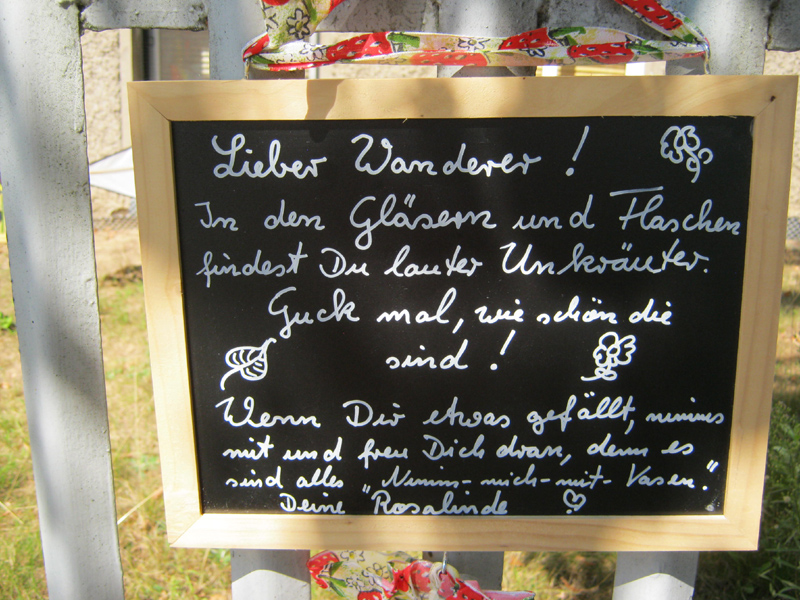 Lieber Wanderer!
In den Gläsern und Flaschen
findest Du lauter Unkräuter.
Guck mal, wie schön die
sind!
Wenn Dir etwas gefällt, nimms
mit und freu Dich dran, denn es
sind alles "Nimm-mich-mit-Vasen".
Deine "Rosalinde